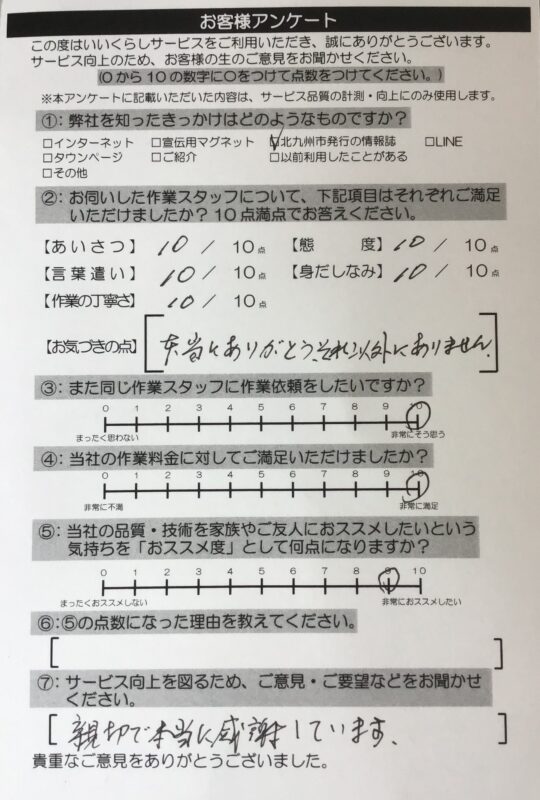 お客様アンケート
この度はいいくらしサービスをご利用いただき、誠にありがとうございます。
サービス向上のため、お客様の生のご意見をお聞かせください。
(0から10の数字に○をつけて点数をつけてください。)
※本アンケートに記載いただいた内容は、サービス品質の計測・向上にのみ使用します。
①：弊社を知ったきっかけはどのようなものですか？
□インターネット □宣伝用マグネット ☑北九州市発行の情報誌 □LINE
□タウンページ □ご紹介 □以前利用したことがある
□その他
②：お伺いした作業スタッフについて、下記項目はそれぞれご満足
いただけましたか？10点満点でお答えください。
【あいさつ】 10 / 10点 【態度】 10 / 10点
【言葉遣い】 10 / 10点 【身だしなみ】 10 / 10点
【作業の丁寧さ】 10 / 10点
【お気づきの点】 本当にありがとう、それ以外にありません。
③：また同じ作業スタッフに作業依頼をしたいですか？
0 1 2 3 4 5 6 7 8 9 10
まったく思わない 非常にそう思う
④：当社の作業料金に対してご満足いただけましたか？
0 1 2 3 4 5 6 7 8 9 10
非常に不満 非常に満足
⑤：当社の品質・技術を家族やご友人におススメしたいという
気持ちを「おススメ度」として何点になりますか？
0 1 2 3 4 5 6 7 8 9 10
まったくおススメしない 非常におススメしたい
⑥：⑤の点数になった理由を教えてください。
⑦：サービス向上を図るため、ご意見・ご要望などをお聞かせ
ください。
親切で本当に感謝しています、
貴重なご意見をありがとうございました。